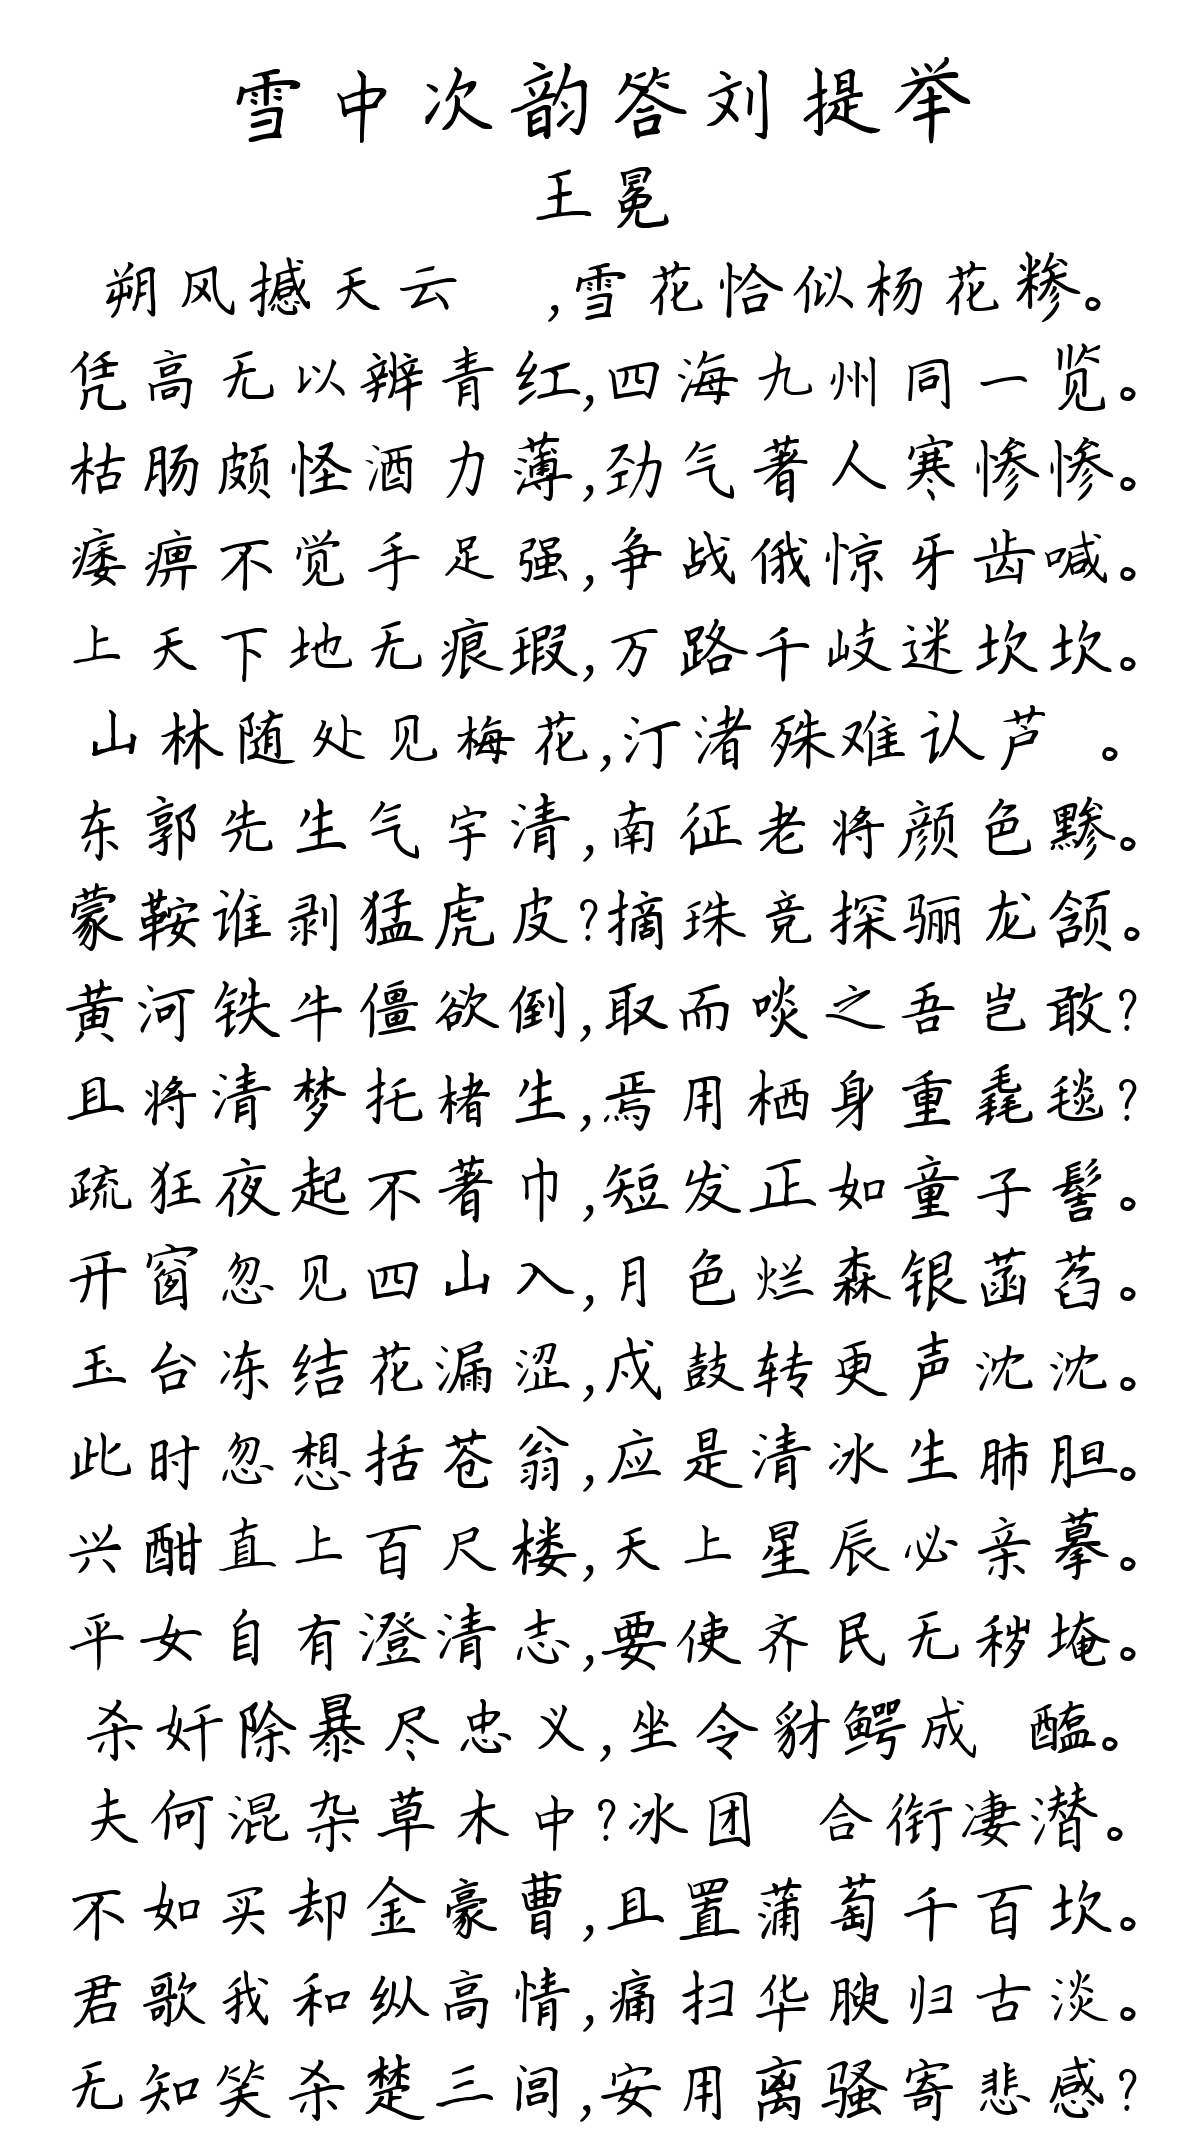 雪中次韵答刘提举
王冕
朔风撼天云 ,雪花恰似杨花糁。
凭高无以辨青红,四海九州同一览。
枯肠颇怪酒力薄,劲气著人寒惨惨。
痿痹不觉手足强,争战俄惊牙齿喊。
上天下地无痕瑕,万路千岐迷坎坎。
山林随处见梅花,汀渚殊难认芦 。
东郭先生气宇清,南征老将颜色黪。
蒙鞍谁剥猛虎皮?摘珠竞探骊龙颔。
黄河铁牛僵欲倒,取而啖之吾岂敢?
且将清梦托楮生,焉用栖身重毳毯?
疏狂夜起不著巾,短发正如童子髻。
开窗忽见四山入,月色烂森银菡萏。
玉台冻结花漏涩,戍鼓转更声沈沈。
此时忽想括苍翁,应是清冰生肺胆。
兴酣直上百尺楼,天上星辰必亲摹。
平女自有澄清志,要使齐民无秽埯。
杀奸除暴尽忠义,坐令豺鳄成 醢。
夫何混杂草木中?冰团 合衔凄潜。
不如买却金豪曹,且置蒲萄千百坎。
君歌我和纵高情,痛扫华腴归古淡。
无知笑杀楚三闾,安用离骚寄悲感?